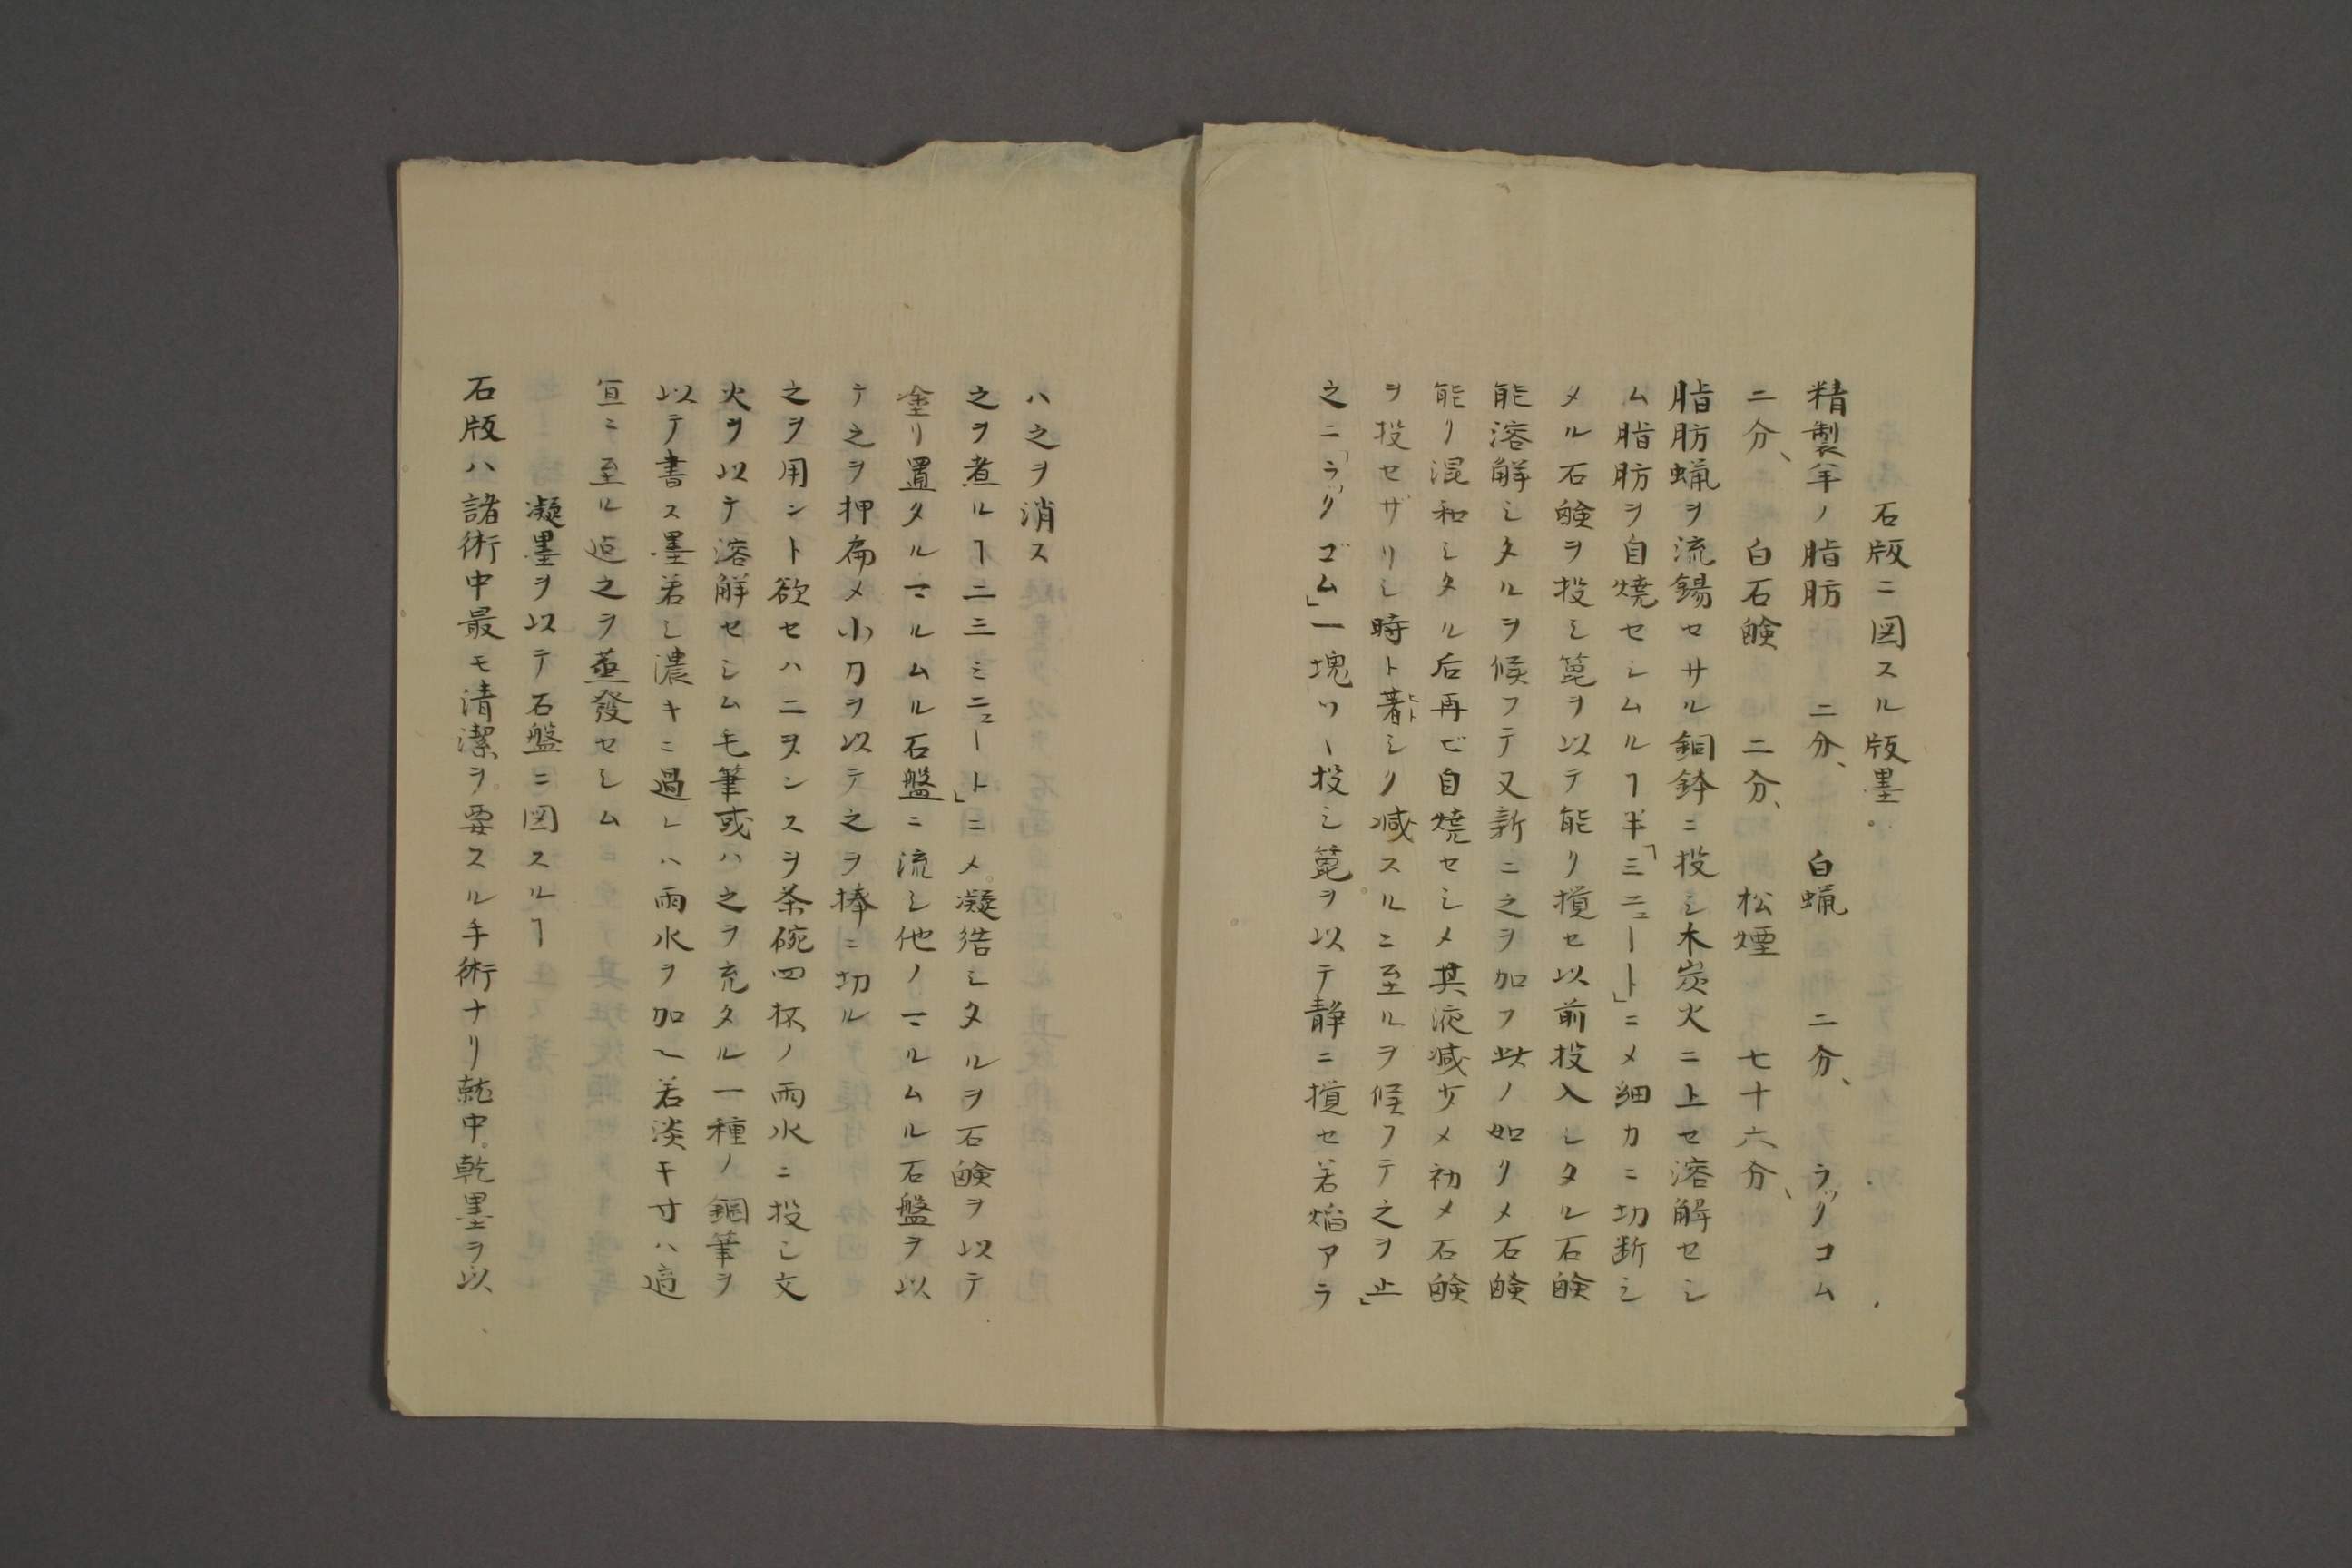 石版ニ図スル版墨。
精製羊ノ脂肪　二分、　白蝋　二分、　ラックコム
二分、　白石鹸　二分、　松煙　七十六分、
脂肪蝋ヲ流錫セサル銅鉢ニ投シ木炭火ニ上セ溶解セシ
ム脂肪ヲ自焼セシムルヿ半「ミニュート」ニメ細カニ切断シ
メル石鹸ヲ投シ箆ヲ以テ能ク攪セ以前投入シタル石鹸
能溶解シタルヲ候フテ又新ニ之ヲ加フ此ノ如クメ石鹸
能ク混和シタル后再ビ自焼セシメ其液減少メ初メ石鹸
ヲ投セザリシ時ト著シク減スルニ至ルヲ候フテ之ヲ止」
之ニ「ラックゴム」一塊ツヽ投シ箆ヲ以テ静ニ攪セ若焔アラ
ハ之ヲ消ス
之ヲ煮ルヿ二三ミニュート」ニメ凝結シタルヲ石鹸ヲ以テ
塗リ置タルマルムル石盤ニ流シ他ノマルムル石盤ヲ以
テ之ヲ押扁メ小刀ヲ以テ之ヲ捧ニ切ル
之ヲ用ント欲セハ二ヲンスヲ茶碗四杯ノ雨水ニ投シ文
火ヲ以テ溶解セシム毛筆或ハ之ヲ充タル一種ノ鋼筆ヲ
以テ書ス墨若シ濃キニ過レハ雨水ヲ加ヘ若淡キ寸ハ適
宜ニ至ル迄之ヲ蒸發セシム
凝墨ヲ以テ石盤ニ図スルヿ
石版ハ諸術中最モ清潔ヲ要スル手術ナリ就中乾墨ヲ以